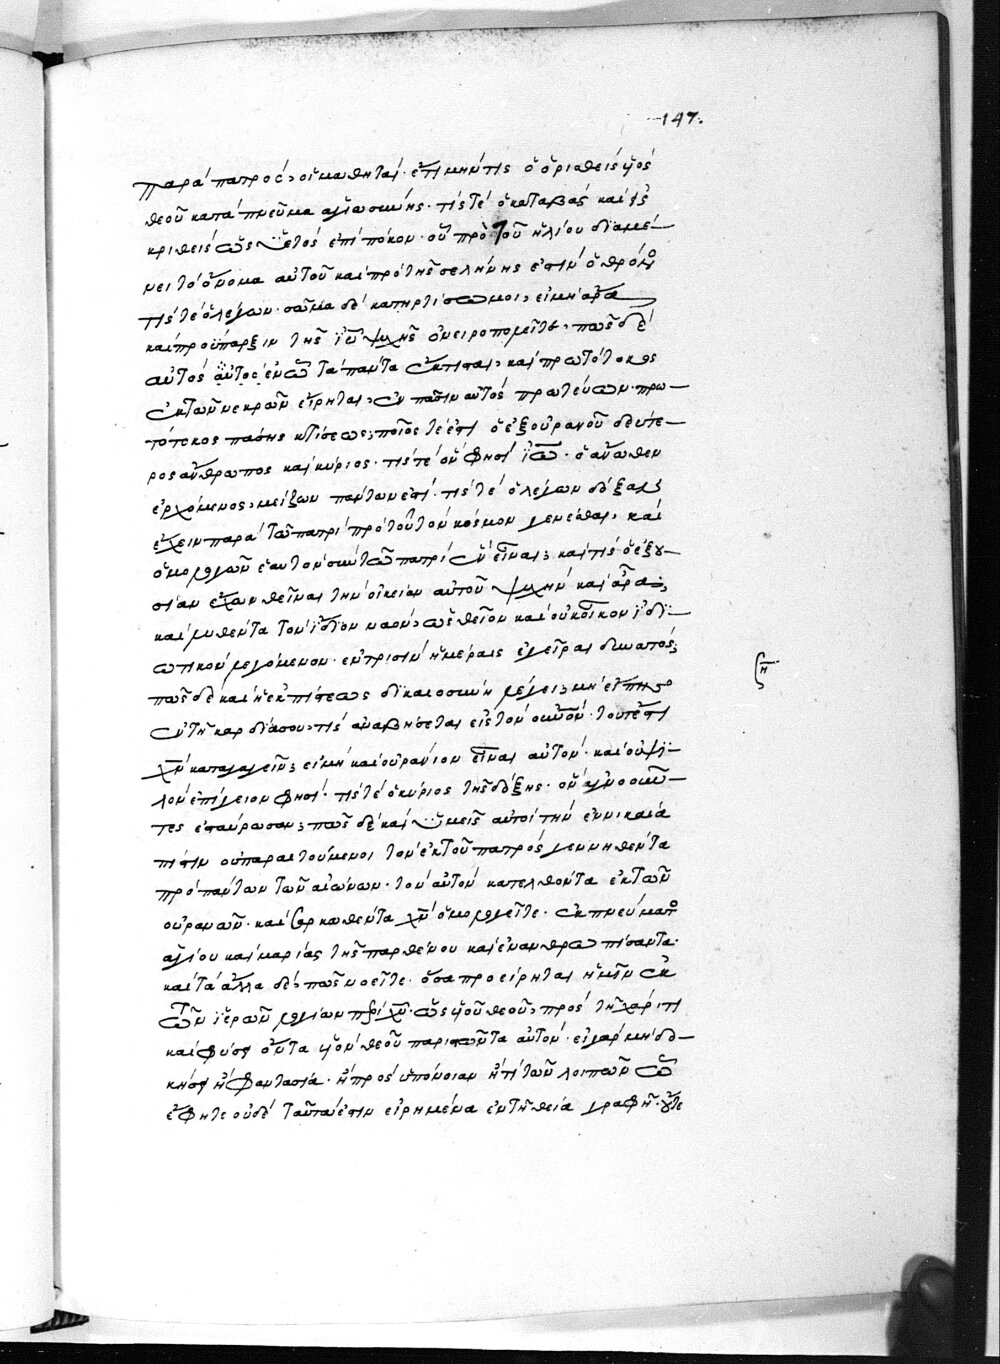 147.
παρὰ πατρὸς, οἱ μαθηταί. ἔτι μήν τις ὁ ὁρισθεὶς υἱὸς
θεοῦ κατὰ πνεῦμα ἁγιωσύνης. τίς τέ ὁ καταβὰς καὶ
κριθεὶς ὡς ὑετὸς ἐπὶ πόκον. οὗ πρὸ τοῦ ἡλίου διαμέ-
νει τὸ ὄνομα αὐτοῦ καὶ πρὸ τῆς σελήνης ἐστὶν ὁ θρόνος
τίς τέ ὁ λέγων. σῶμα δὲ κατηρτίσω μοι, εἰ μὴ ἄρα
καὶ προύπαρξιν τῆς ιυ ψυχῆς ὀνειροπολεῖτε. πῶς δὲ
αὐτὸς αὐτὸς ἐν ὧ τὰ πάντα ἔκτισται, καὶ πρωτότοκος
ἐκ τῶν νεκρῶν εἴρηται, ἐν πᾶσιν αὐτὸς πρωτεύων. πρω-
τότοκος πάσης κτίσεως; ποῖος τέ ἐστι ὁ ἐξ οὐρανοῦ δεύτε-
ρος ἄνθρωπος καὶ κύριος. τίς τέ ὃν φησὶ ιω. ὁ ἄνωθεν
ἐρχόμενος, μείζων πάντων ἐστί. τίς τέ ὁ λέγων δόξαν
ἔχειν παρὰ τῶ πατρὶ πρὸ τοῦ τὸν κόσμον γενέσθαι, καὶ
ὁμολογῶν ἑαυτὸν σὺν τῶ πατρὶ ἓν εἶναι; καὶ τίς ὁ ἐξου-
σίαν ἔχων θεῖναι τὴν οἰκείαν αὐτοῦ ψυχὴν καὶ ἆραι;
καὶ λυθέντα τὸν ἴδιον ναὸν, ὡς θεῖον καὶ οὐκ οἶκον ἰδι-
ωτικὸν λεγόμενον. ἐν τρισὶν ἡμέραις ἐγεῖραι δυνατός;
πῶς δὲ καὶ ἡ ἐκ πίστεως δικαιοσύνη λέγει; μὴ εἴπης
ἐν τῆ καρδία σου, τίς ἀναβήσεται εἰς τὸν οὐνόν. τουτέστι
χν καταγαγεῖν; εἰ μὴ καὶ οὐράνιον εἶναι αὐτόν. καὶ οὐ ψι-
λὸν ἐπίγειον φησί. τίς τέ ὁ κύριος τῆς δόξης. ὃν ἀγνοοῦν-
τες ἐσταύρωσαν; πῶς δὲ καὶ ὑμεῖς αὐτοὶ τὴν ἐν νικαία
πίστιν οὐ παραιτούμενοι τὸν ἐκ τοῦ πατρὸς γεννηθέντα
πρὸ πάντων τῶν αἰώνων. τὸν αὐτὸν κατελθόντα ἐκ τῶν
οὐρανῶν. καὶ σαρκωθέντα χν ὁμολογεῖτε. ἐκ πνεύματος
ἁγίου καὶ μαρίας τῆς παρθένου καὶ ἐνανθρωπίσαντα.
καὶ τὰ ἄλλα δὲ, πῶς νοεῖτε. ὅσα προείρηται ἡμῖν ἐκ
τῶν ἱερῶν λογίων περὶ χυ. ὡς υἱοῦ θεοῦ, πρὸς τῆ χάριτι
καὶ φύσει ὄντα υἱὸν θεοῦ παριστῶντα αὐτόν. εἰ γὰρ μὴ δο-
κήσει ἢ φαντασία. ἢ πρὸς ὑπόνοιαν ἤ τι τῶν λοιπῶν ὧν
ἔφητε οὐδὲ ταῦτα ἐστιν εἰρημένα ἐν τῆ θεία γραφῆ. οὔτε